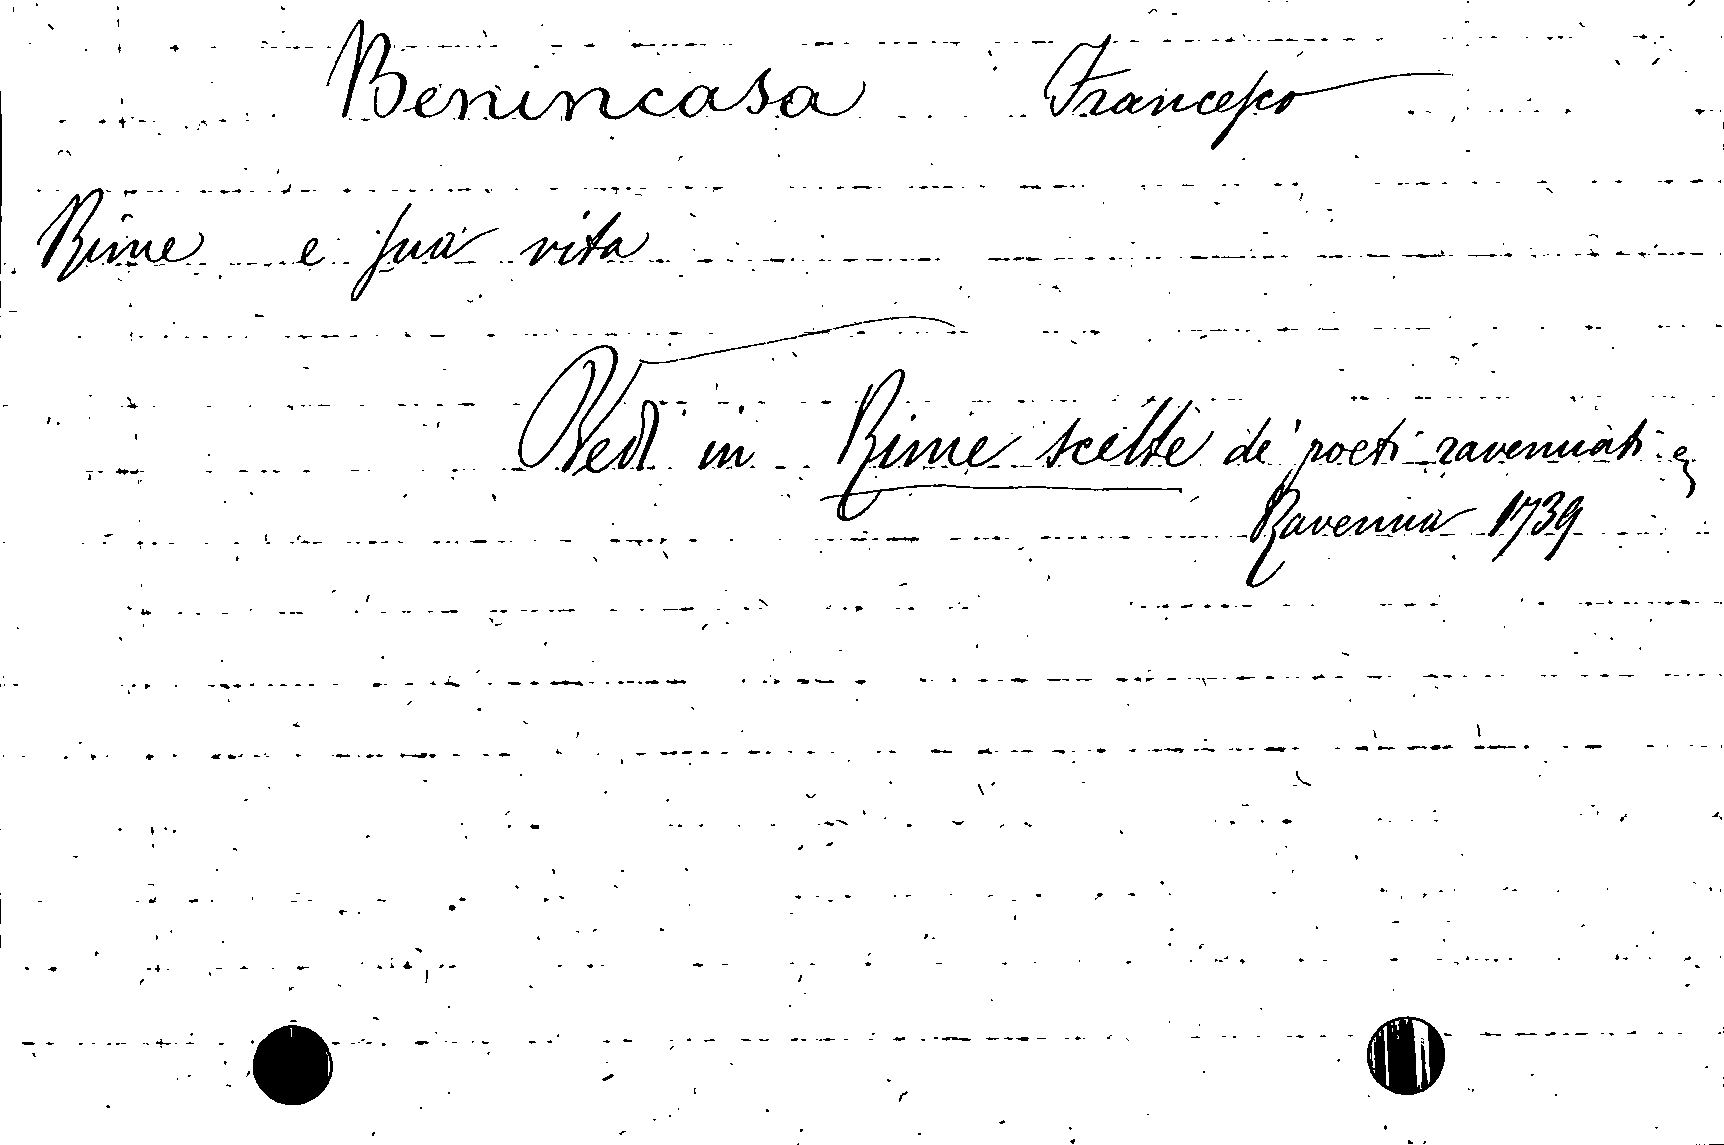 Benincasa Francesco
Rime e sua vita
Vedi in Rime scelte de' poeti ravennati e
Ravenna 1739